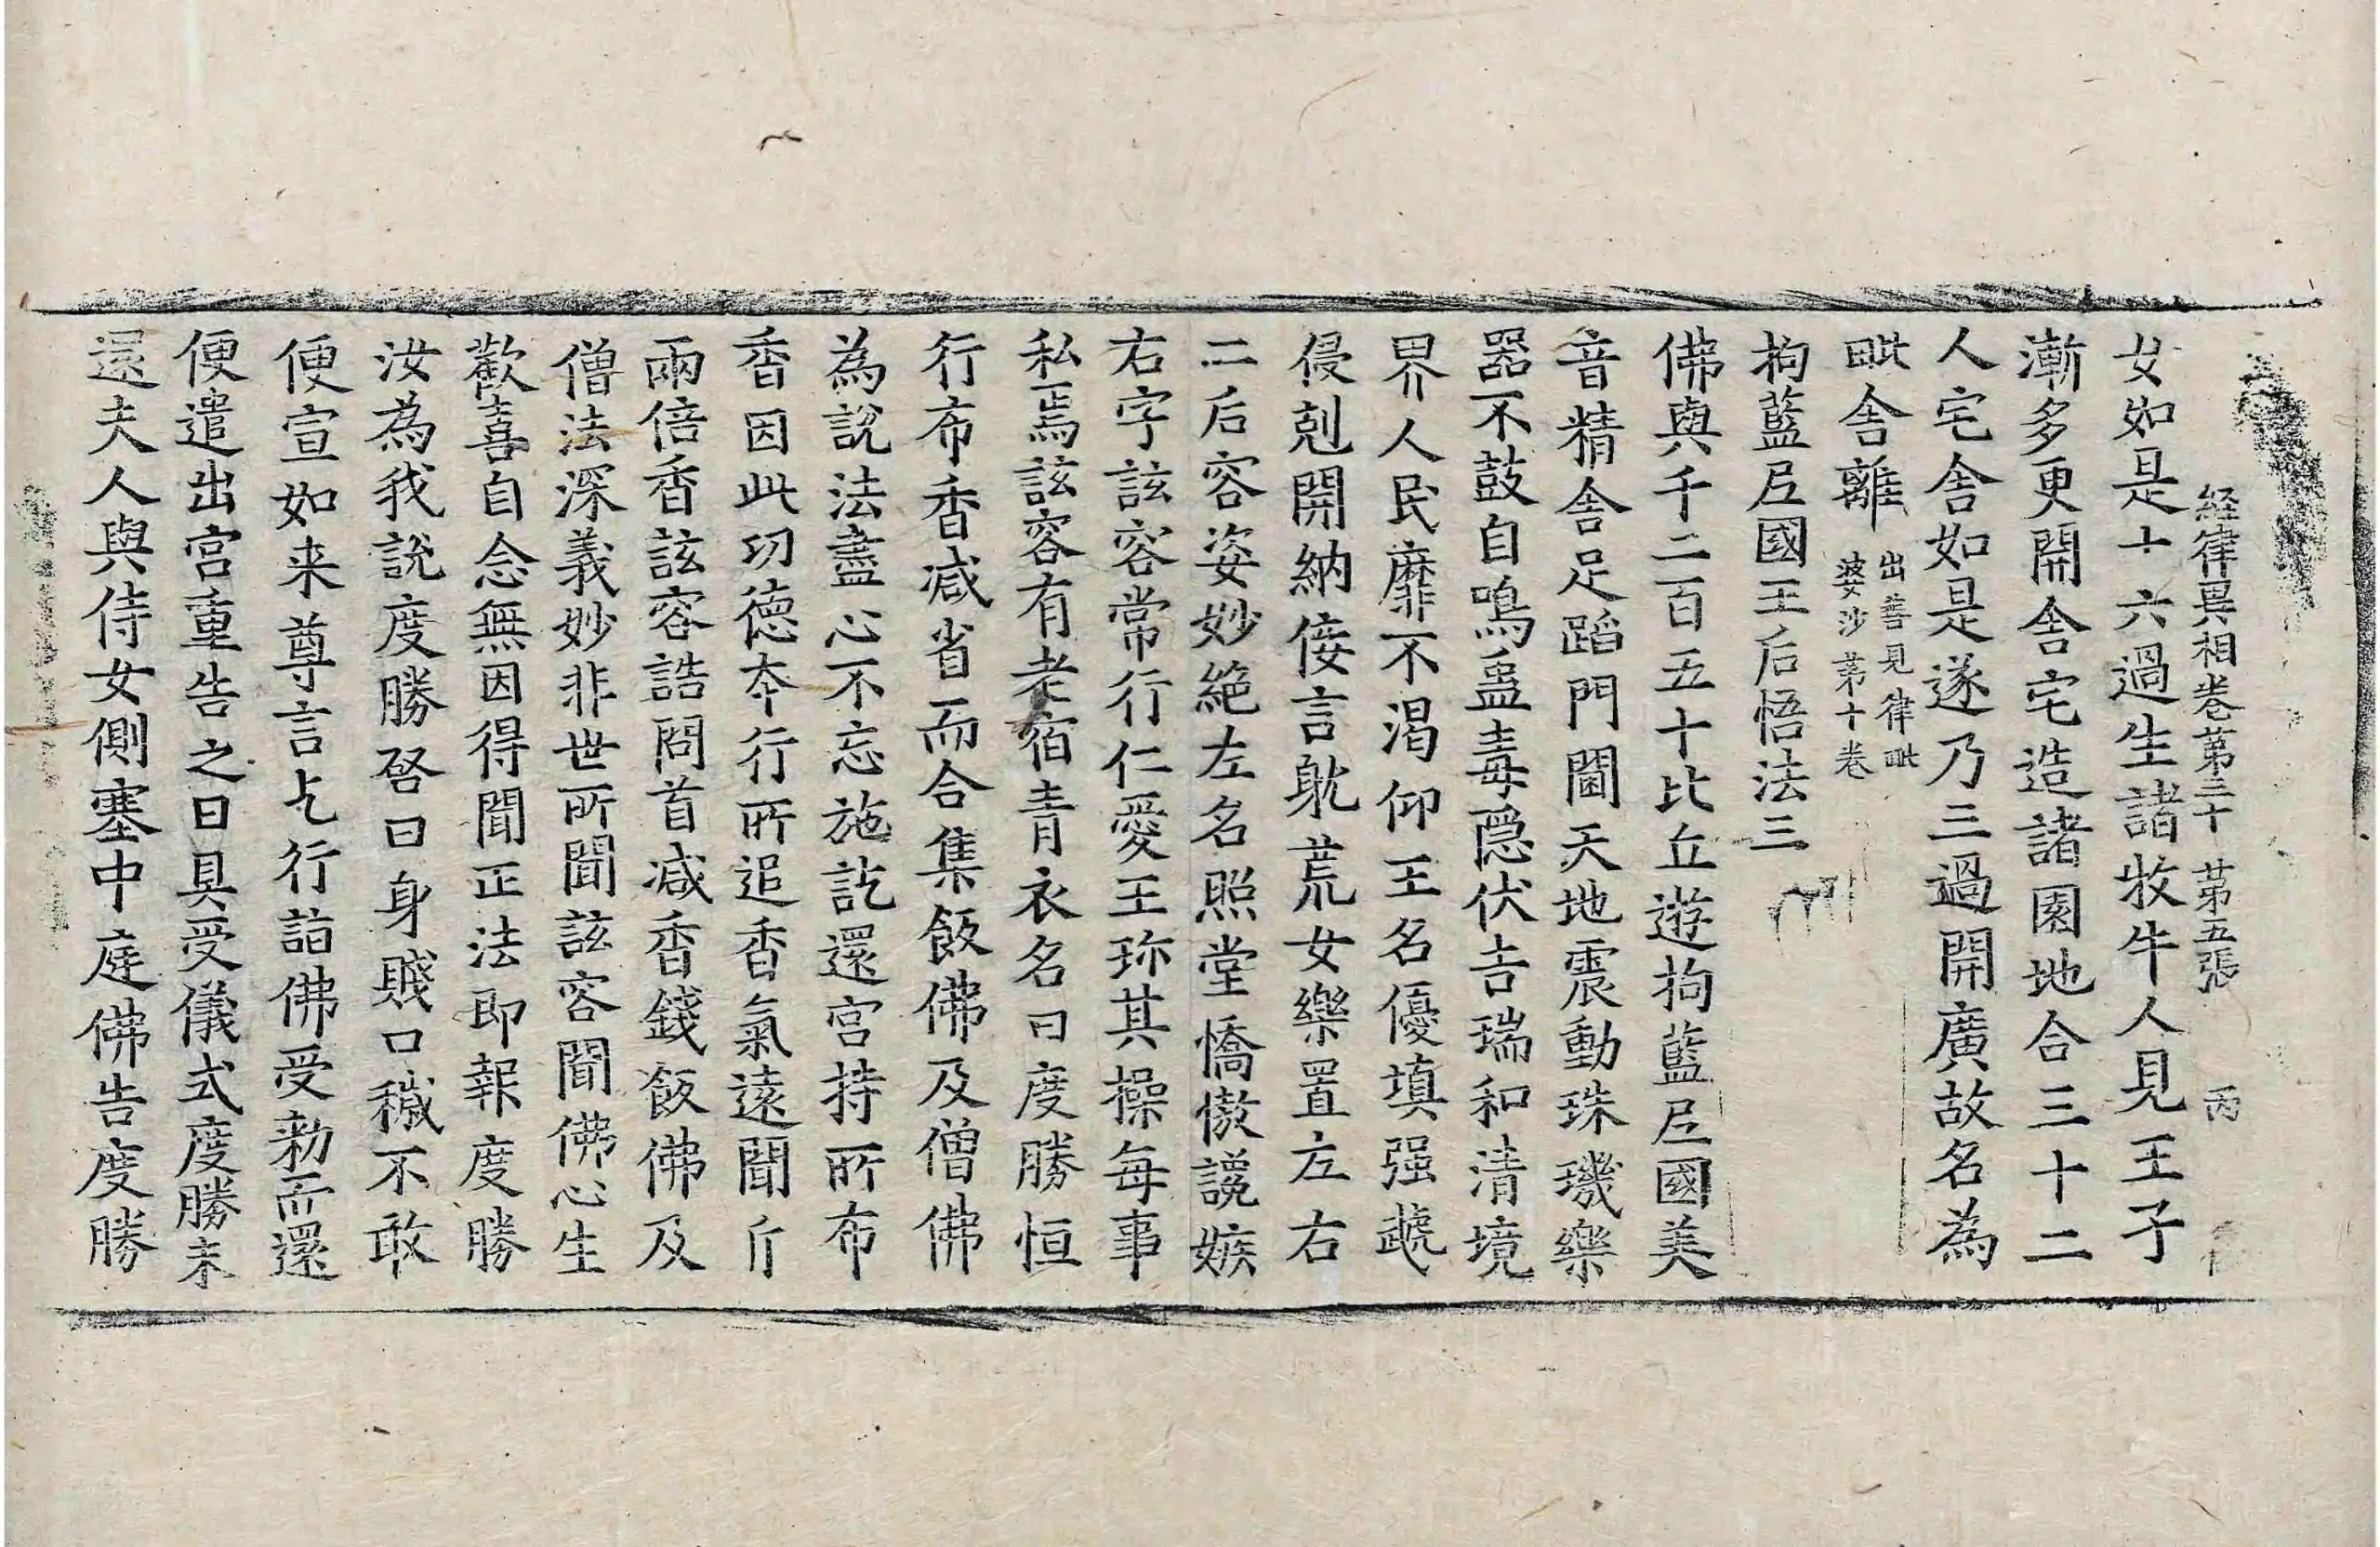 経律異相卷第三十 第五張 丙
女如是十六過生諸牧牛人見王子
漸多更開舍宅造諸園地合三十二
人宅舍如是遂乃三過開廣故名為
毗舍離出善見律毗
婆沙第十卷
拘藍尼國王后悟法三
佛與千二百五十比丘遊拘藍尼國美
音精舍足蹈門閫天地震動珠璣樂
器不鼓自鳴蠱毒隱伏吉瑞和清境
界人民靡不渴仰王名優填强虣
侵剋開納侫言躭荒女樂置左右
二后容姿妙絶左名照堂憍慠讒嫉
右字該容常行仁愛王珎其操每事
私焉該容有老宿青衣名曰度勝恒
行布香减省而合集飯佛及僧佛
為說法盡心不忘施訖還宫持所布
香因此㓛德夲行所追香氣遠聞斤
兩倍香該容誥問首减香錢飯佛及
僧法深義妙非世所聞該容聞佛心生
歡喜自念無因得聞正法即報度勝
汝為我說度勝啓曰身賎口穢不敢
便宣如来尊言乞行詣佛受勑而還
便遣出宫重告之曰具受儀式度勝未
還夫人與侍女側塞中庭佛告度勝